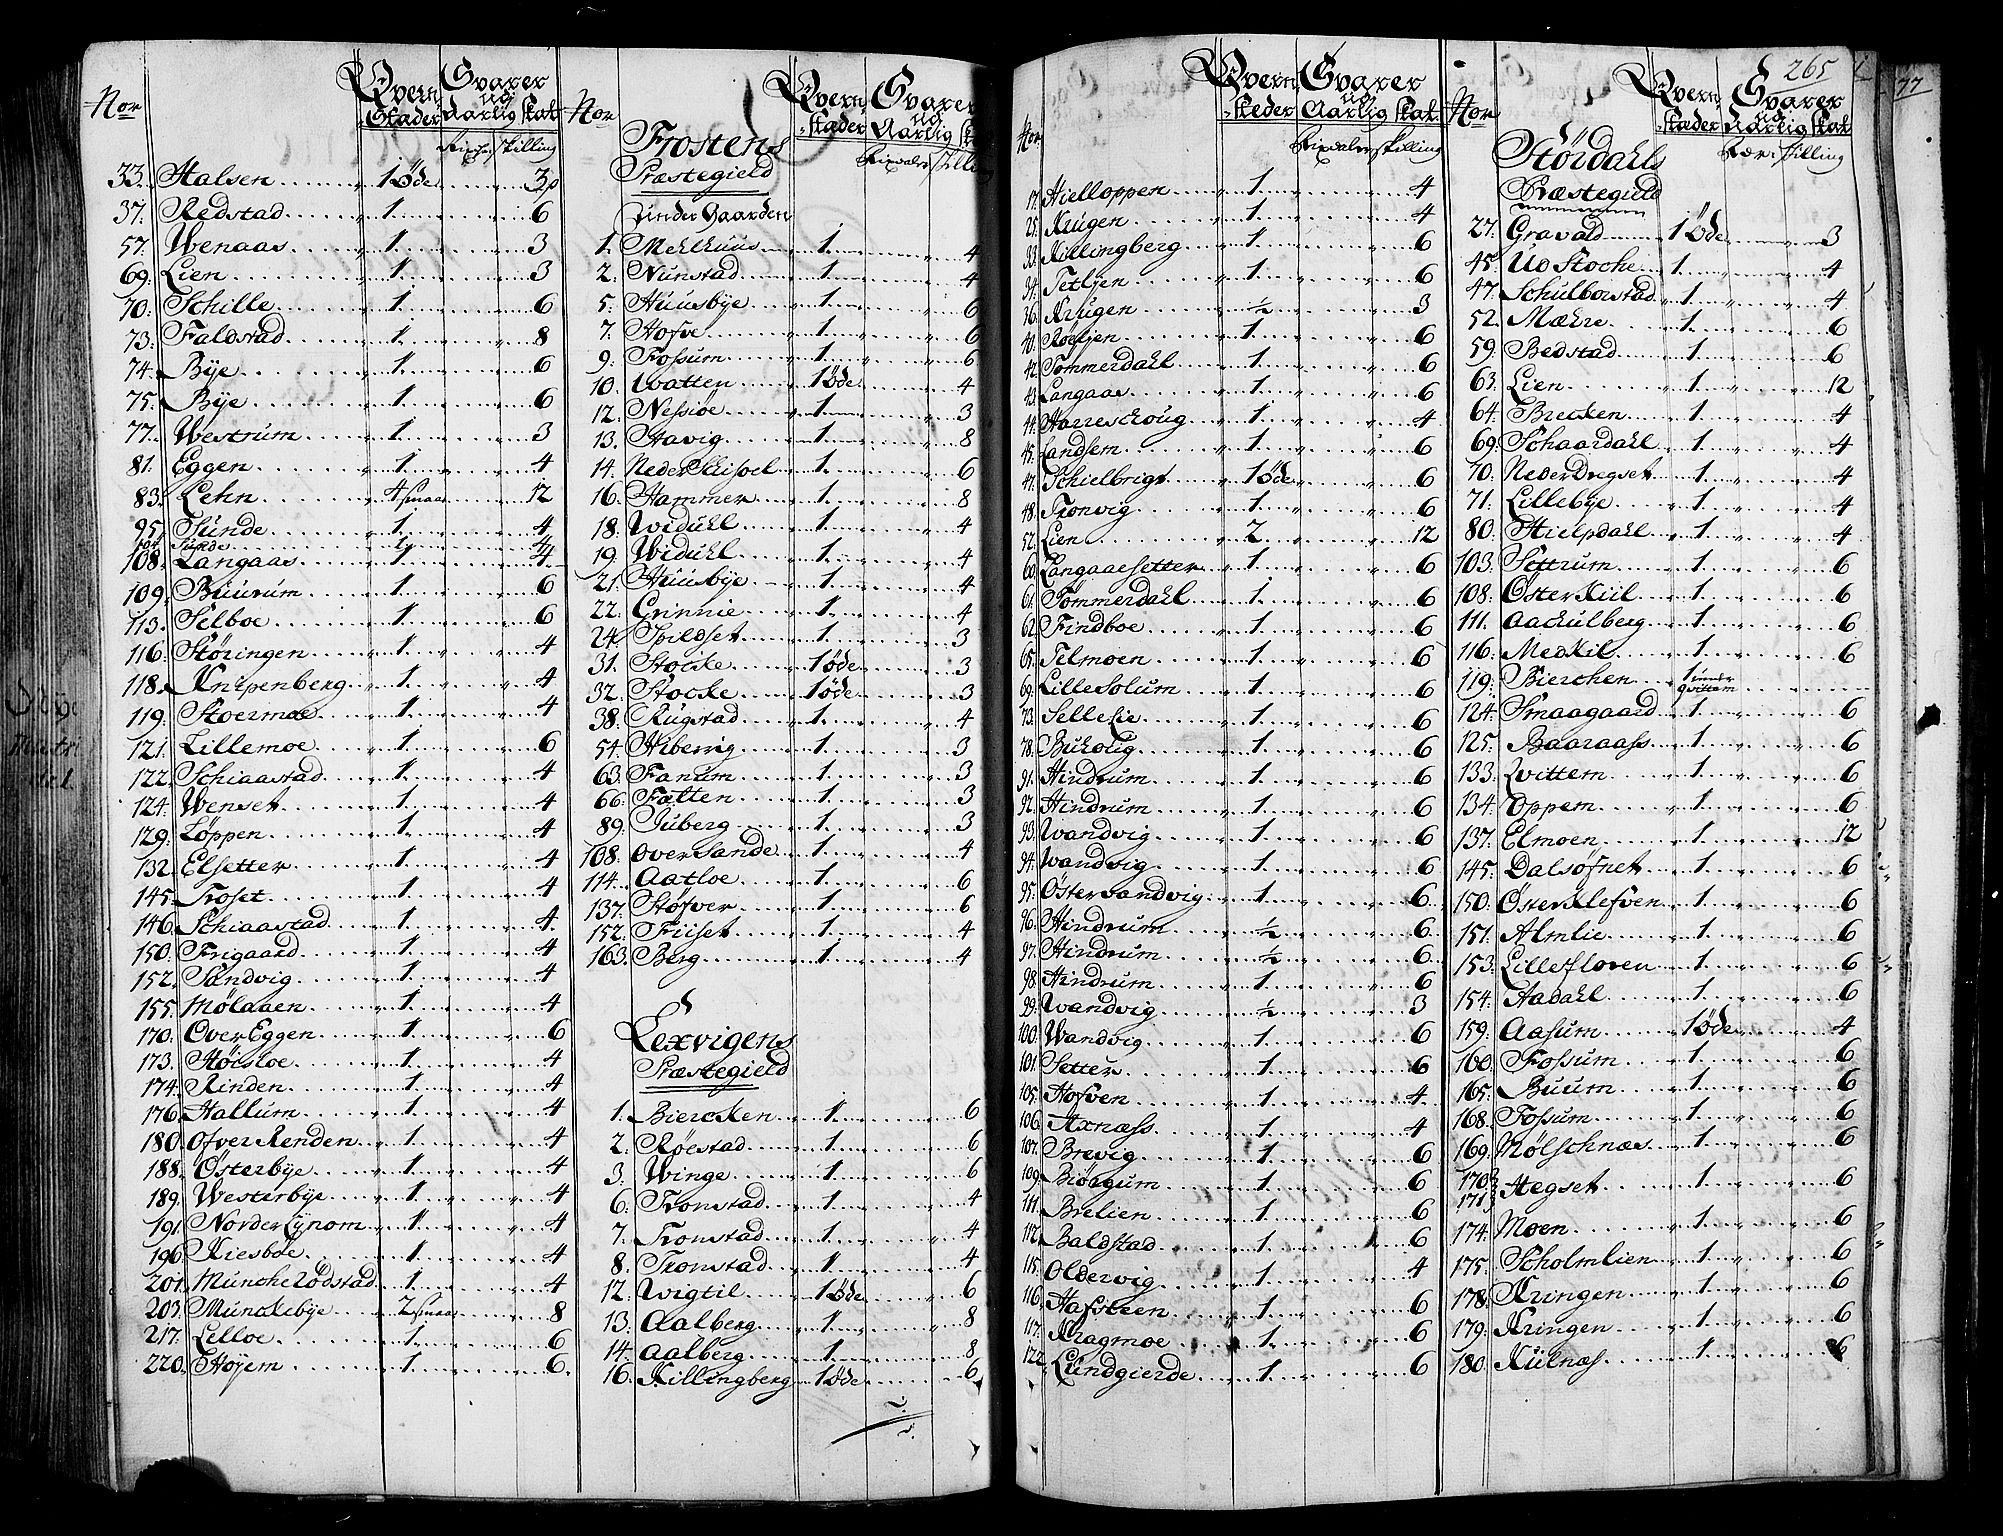 Nor
Qvern Stæder
Svarer ud Aarlig Skat
skilling
33. Halsen 1 öde 3
37. Redstad 1 6
57. Wenaas 1 3
69. Lien 1 3
70. Schille 1 6
73. Faldstad 1 8
74. Bÿe 1 6
75. Bÿe 1 6
77. Westrum 1 3
81. Eggen 1 4
83. Lehn 4 smaa 12
95. Sunde 1 4
104. Sunde 1 4
108. Langaas 1 4
109. Buurum 1 6
113. Selboe 1 6
116. Störingen 1 4
118. Knipenberg 1 4
119. Stoermoe 1 4
121. Lillemoe 1 6
122. Schiaastad 1 4
124. Wenset 1 4
129. Löppen 1 4
132. Elsetter 1 4
145. Troset 1 4
146. Schiaastad 1 4
150. Frigaard 1 4
152. Sandvig 1 4
155. Mölaaen 1 4
170. Over Eggen 1 6
173. Höisloe 1 4
174. Rinden 1 4
176. Hallum 1 4
180. Ofver Renden 1 4
188. Österbÿe 1 4
189. Westerbÿe 1 4
191. Norder Lÿnom 1 4
196. Kiesboe 1 4
201. Munche Rödstad 1 4
203. Munckebÿe 2 smaa 8
217. Lilloe 1 6
220. Höÿem 1 6
Nor
Qvern Stæder
Svarer ud Aarlig
Rixdaler skilling
Frostens
Præstegield
Under Gaarden
1. Mehlhuus 1 4
2. Nunstad 1 4
5. Huusbÿe 1 6
7. Hofve 1 6
9. Fossum 1 6
10. Watten 1 öde 4
12. Nessiöe 1 3
13. Stavig 1 8
14. Neder Skisoel 1 6
16. Hammer 1 8
18. Widuhl 1 4
19. Widuhl 1 4
21. Huusbÿe 1 4
22. Grinnie 1 4
24. Spildset 1 3
31. Stocke 1 öde 3
32. Stocke 1 öde 3
38. Rugstad 1 4
54. Hibervig 1 3
63. Fanum 1 3
66. Fætten 1 3
89. Juberg 1 3
108. Over Sande 1 4
114. Aatloe 1 6
137. Stöfver 1 6
152. Friiset 1 4
163. Berg 1 4
Lexvigens
Præstegield
1. Biercken 1 6
2. Röestad 1 6
3. Winge 1 6
6. Tronstad 1 4
7. Tronstad 1 4
8. Tronstad 1 4
12. Wigtil 1 öde 6
13. Aalberg 1 8
14. Aalberg 1 8
16. Killingberg 1 öde 6
Nor
Qvern Steder
Svarer ud Aarlig Skat
Rixdaler skilling
17. Hielloppen 1 4
25. Krugen 1 4
33. Killingberg 1 6
34. Tetljen 1 6
36. Krugen ½ 3
40. Röeljen 1 6
42. Sommerdahl 1 6
43. Langaae 1 6
44. Harreschoug 1 4
45. Landsem 1 6
47. Schielbrigt 1 öde 6
48. Tronvig 1 6
52. Lien 2 12
60. Langaaesetter 1 6
61. Sommerdahl 1 6
62. Findboe 1 6
65. Telmoen 1 6
69. Lille Solum 1 6
73. Sellelie 1 6
78. Bukolig 1 6
91. Hindrum 1 6
92. Hindrum 1 6
93. Wandvig 1 6
94. Wandvig 1 6
95. Östervandvig 1 6
96. Hindrum ½ 6
97. Hindrum ½ 6
98. Hindrum 1 6
99. Wandvig ½ 3
100. Wandvig 1 6
101. Setter 1 6
105. Hofven 1 4
106. Axnæss 1 4
107. Brevig 1 6
109. Biörgum 1 6
111. Brelien 1 6
112. Baldstad 1 6
115. Oldervig 1 4
116. Hafsteen 1 6
117. Kragmoe 1 6
122. Lundgierde 1 6
265
Nor
Qvern Stæder
Svarer ud Aarlig Skat
skilling
Stördahls
Præstegield
27. Gravald 1 öde 3
45. Ud Stocke 1 4
47. Schulborstad 1 4
52. Mæhre 1 6
59. Bedstad 1 6
63. Lien 1 12
64. Brecken 1 4
69. Schaardahl 1 4
70. Neder Dregset 1 4
71. Lillebÿe 1 4
80. Hielpdahl 1 4
103. Settrum 1 6
108. Österkiil 1 6
111. Aachulberg 1 6
116. Medkil 1 6
119. Bierchen 1 under Qvittem
124. Smaagaard 1 6
125. Baaraass 1 6
133. Qvittem 1 6
134. Oppem 1 6
137. Elmoen 1 12
145. Dalsöfnet 1 6
150. Öster Klefven 1 6
151. Almlie 1 6
153. Lillefloren 1 6
154. Aadahl 1 6
159. Aasum 1 öde 4
160. Fossum 1 6
165. Buum 1 6
168. Fossum 1 6
169. Mölschnæs 1 6
170. 171. Hegset 1 6
174. Moen 1 6
175. Scholmlien 1 6
178. Kringen 1 6
179. Kringen 1 6
180. Kulnæs 1 6
77